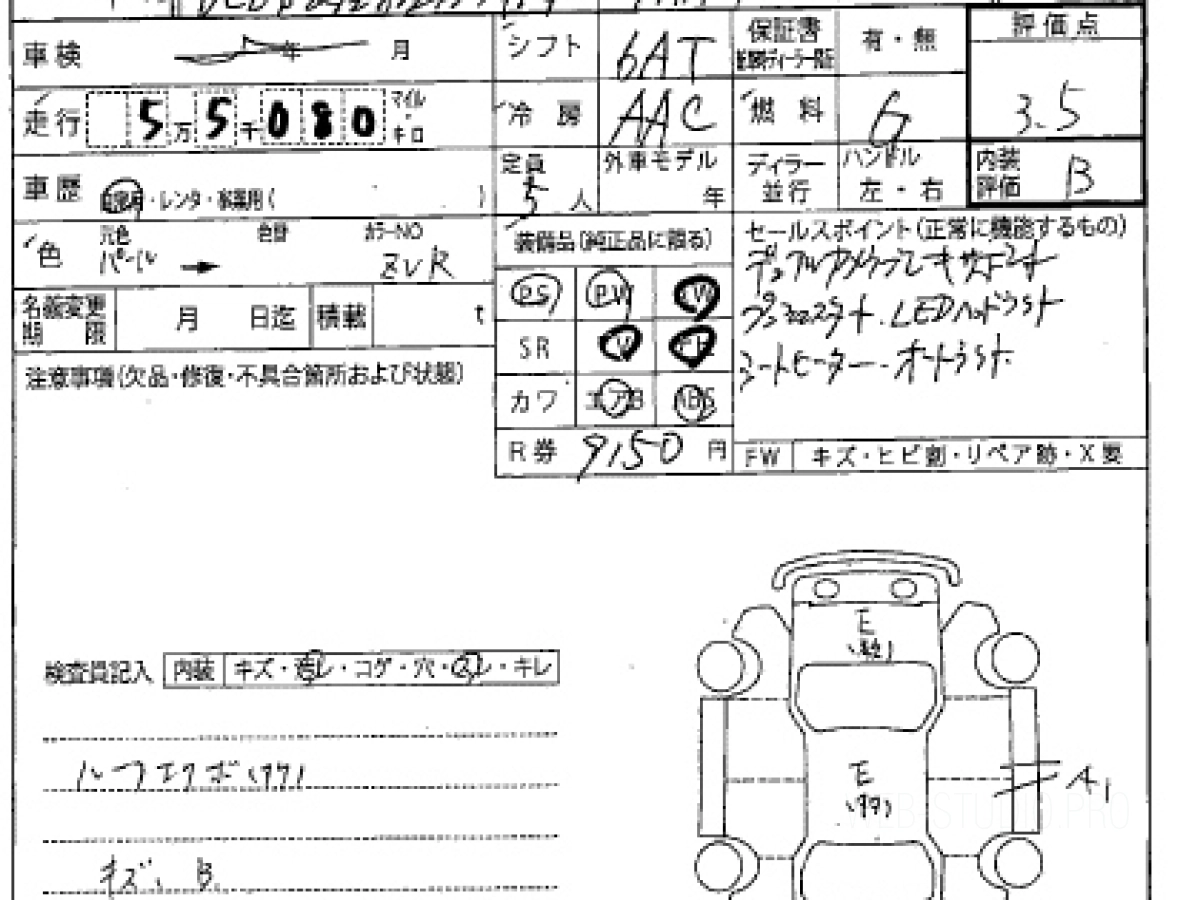 車検 年 月
シフト 6AT
保証書
有・無
評価点
3.5
走行 5万5千080 マイル・キロ
冷房 AAC
燃料 G
車歴 自家用・レンタ・事業用( )
定員 5人
外車モデル 年
ディラー 並行
ハンドル 左・右
内装評価 B
色 元色 パール → 色替 カラーNO ZVR
装備品(純正品に限る)
セールスポイント(正常に機能するもの)
PS PW
名義変更期限 月 日迄 積載 t
SR
LEDヘッドライト
シートヒーター・オートライト
注意事項(欠品・修復・不具合箇所および状態)
カワ エアB ABS
R券 9150円
FW キズ・ヒビ割・リペア跡・X要
検査員記入 内装 キズ・汚レ・コゲ・穴・スレ・キレ
E
E
A1
ルーフエクボ
キズ、B
WEB-STUDIO.PRO